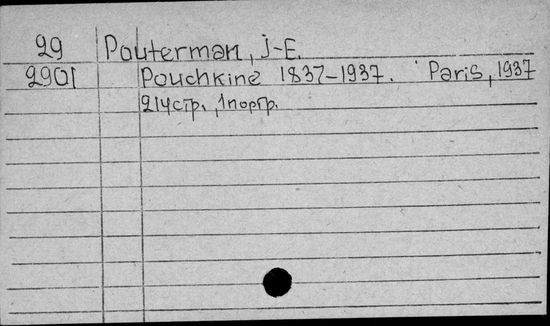 29 Pouterman, J-E.
2901 Pouchkine 1837-1937. Paris, 1937
214стр., 1портр.